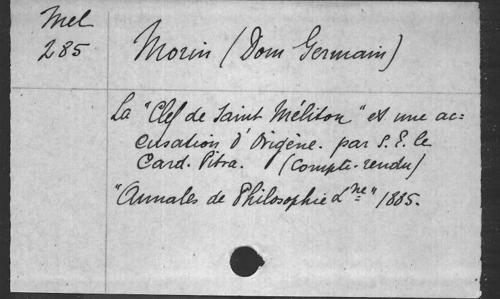 Mel
285
Morin (Dom Germain)
La "Clef de Saint Méliton" et une ac=
cusation d'Origène. par S. E. le
Card. Pitra. (Compte-rendu)
"Annales de Philosophie Xne" 1885.